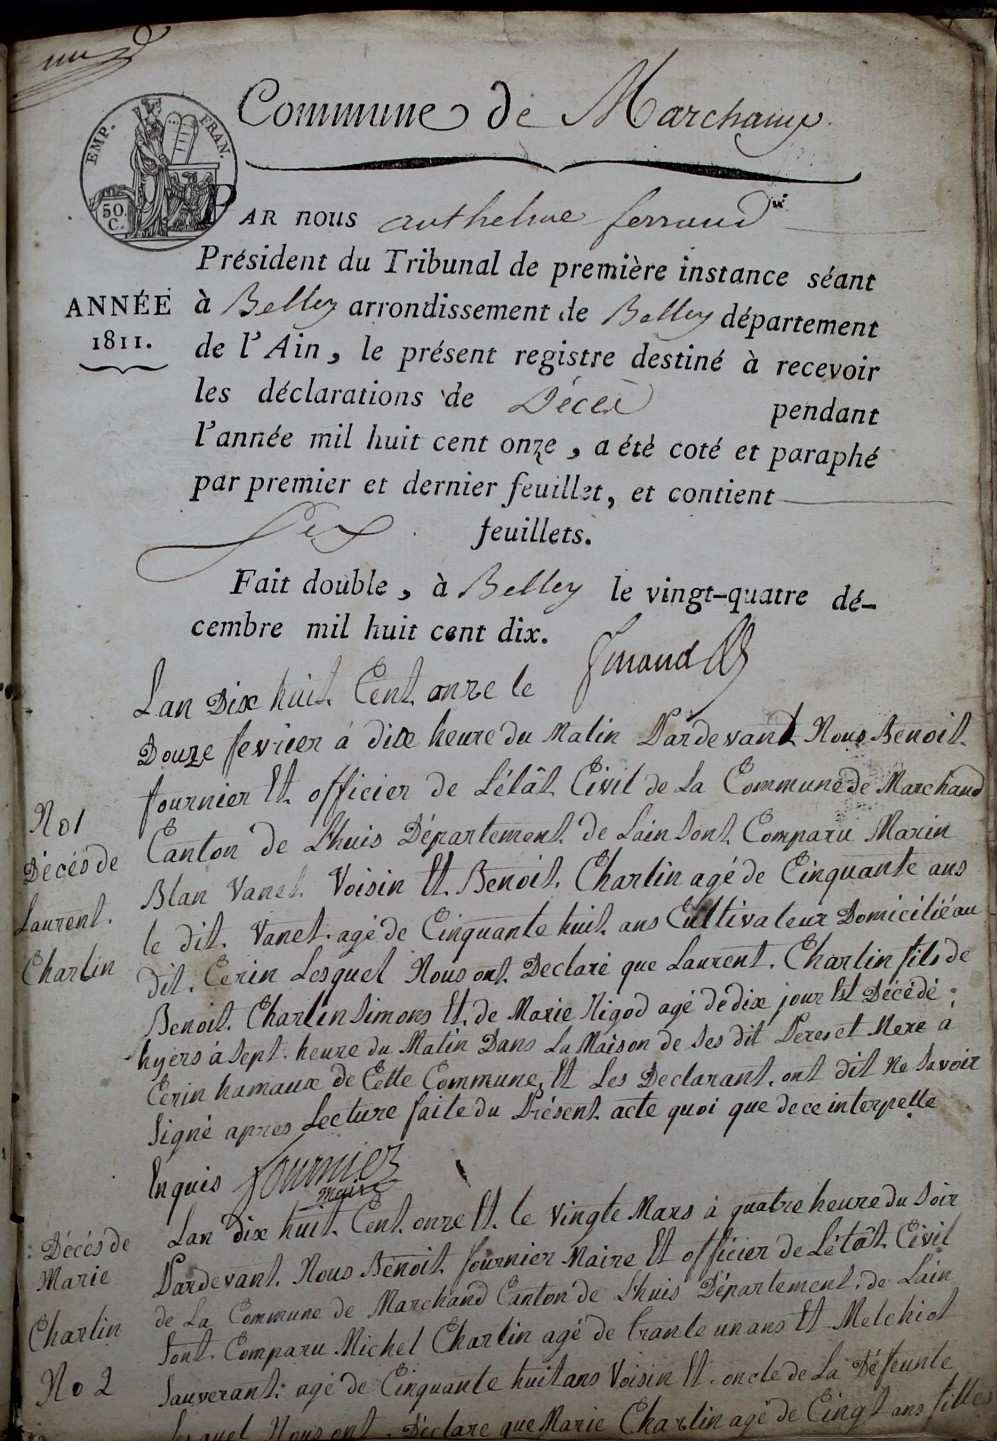 Commune de Marchamp.
EMP. FRAN.
50 C.
PAR nous anthelme ferrand
Président du Tribunal de première instance séant
ANNÉE
1811.
à Belley arrondissement de Belley département
de l'Ain, le présent registre destiné à recevoir
les déclarations de Décès pendant
l'année mil huit cent onze, a été coté et paraphé
par premier et dernier feuillet, et contient
Six feuillets.
Fait double, à Belley le vingt-quatre dé-
cembre mil huit cent dix.
Lan Dix huit Cent onze le
Douze fevrier á dix heure du Matin Pardevant Nous Benoit
fournier Et officier de L'étât Civil de La Commune de Marchand
Canton de Lhuis Département de Lain Sont Comparu Marin
Blan Vanet Voisin Et Benoit Charlin agé de Cinquante ans
le dit Vanet agé de Cinquante huit ans Cultivateur Domicilié au
dit Cerin Lesquel Nous ont Declaré que Laurent Charlin fils de
Benoit Charlin Simons Et de Marie Rigod agé de dix jour Est Décédé
hyers á Sept heure du Matin Dans La Maison de Ses dit Peres et Mere a
Cerin hamaux de Cette Commune Et Les Declarant ont dit Ne Savoir
Signé apres Lecture faite du Présent acte quoi que de ce interpelle
Enquis Fournier
maire
No 1
Décés de
Laurent
Charlin
Lan dix huit Cent onze Et le Vingte Mars á quatre heure du Soir
Pardevant Nous Benoit fournier Maire Et officier de L'étât Civil
de La Commune de Marchand Canton de Lhuis Département de Lain
Sont Comparu Michel Charlin agé de trante un ans Et Melchiot
Sauverant agé de Cinquante huit ans Voisin Et oncle de La Défeunte
Lesquel Nous ont Déclare que Marie Charlin agé de Cingt ans filles
Décés de
Marie
Charlin
No 2